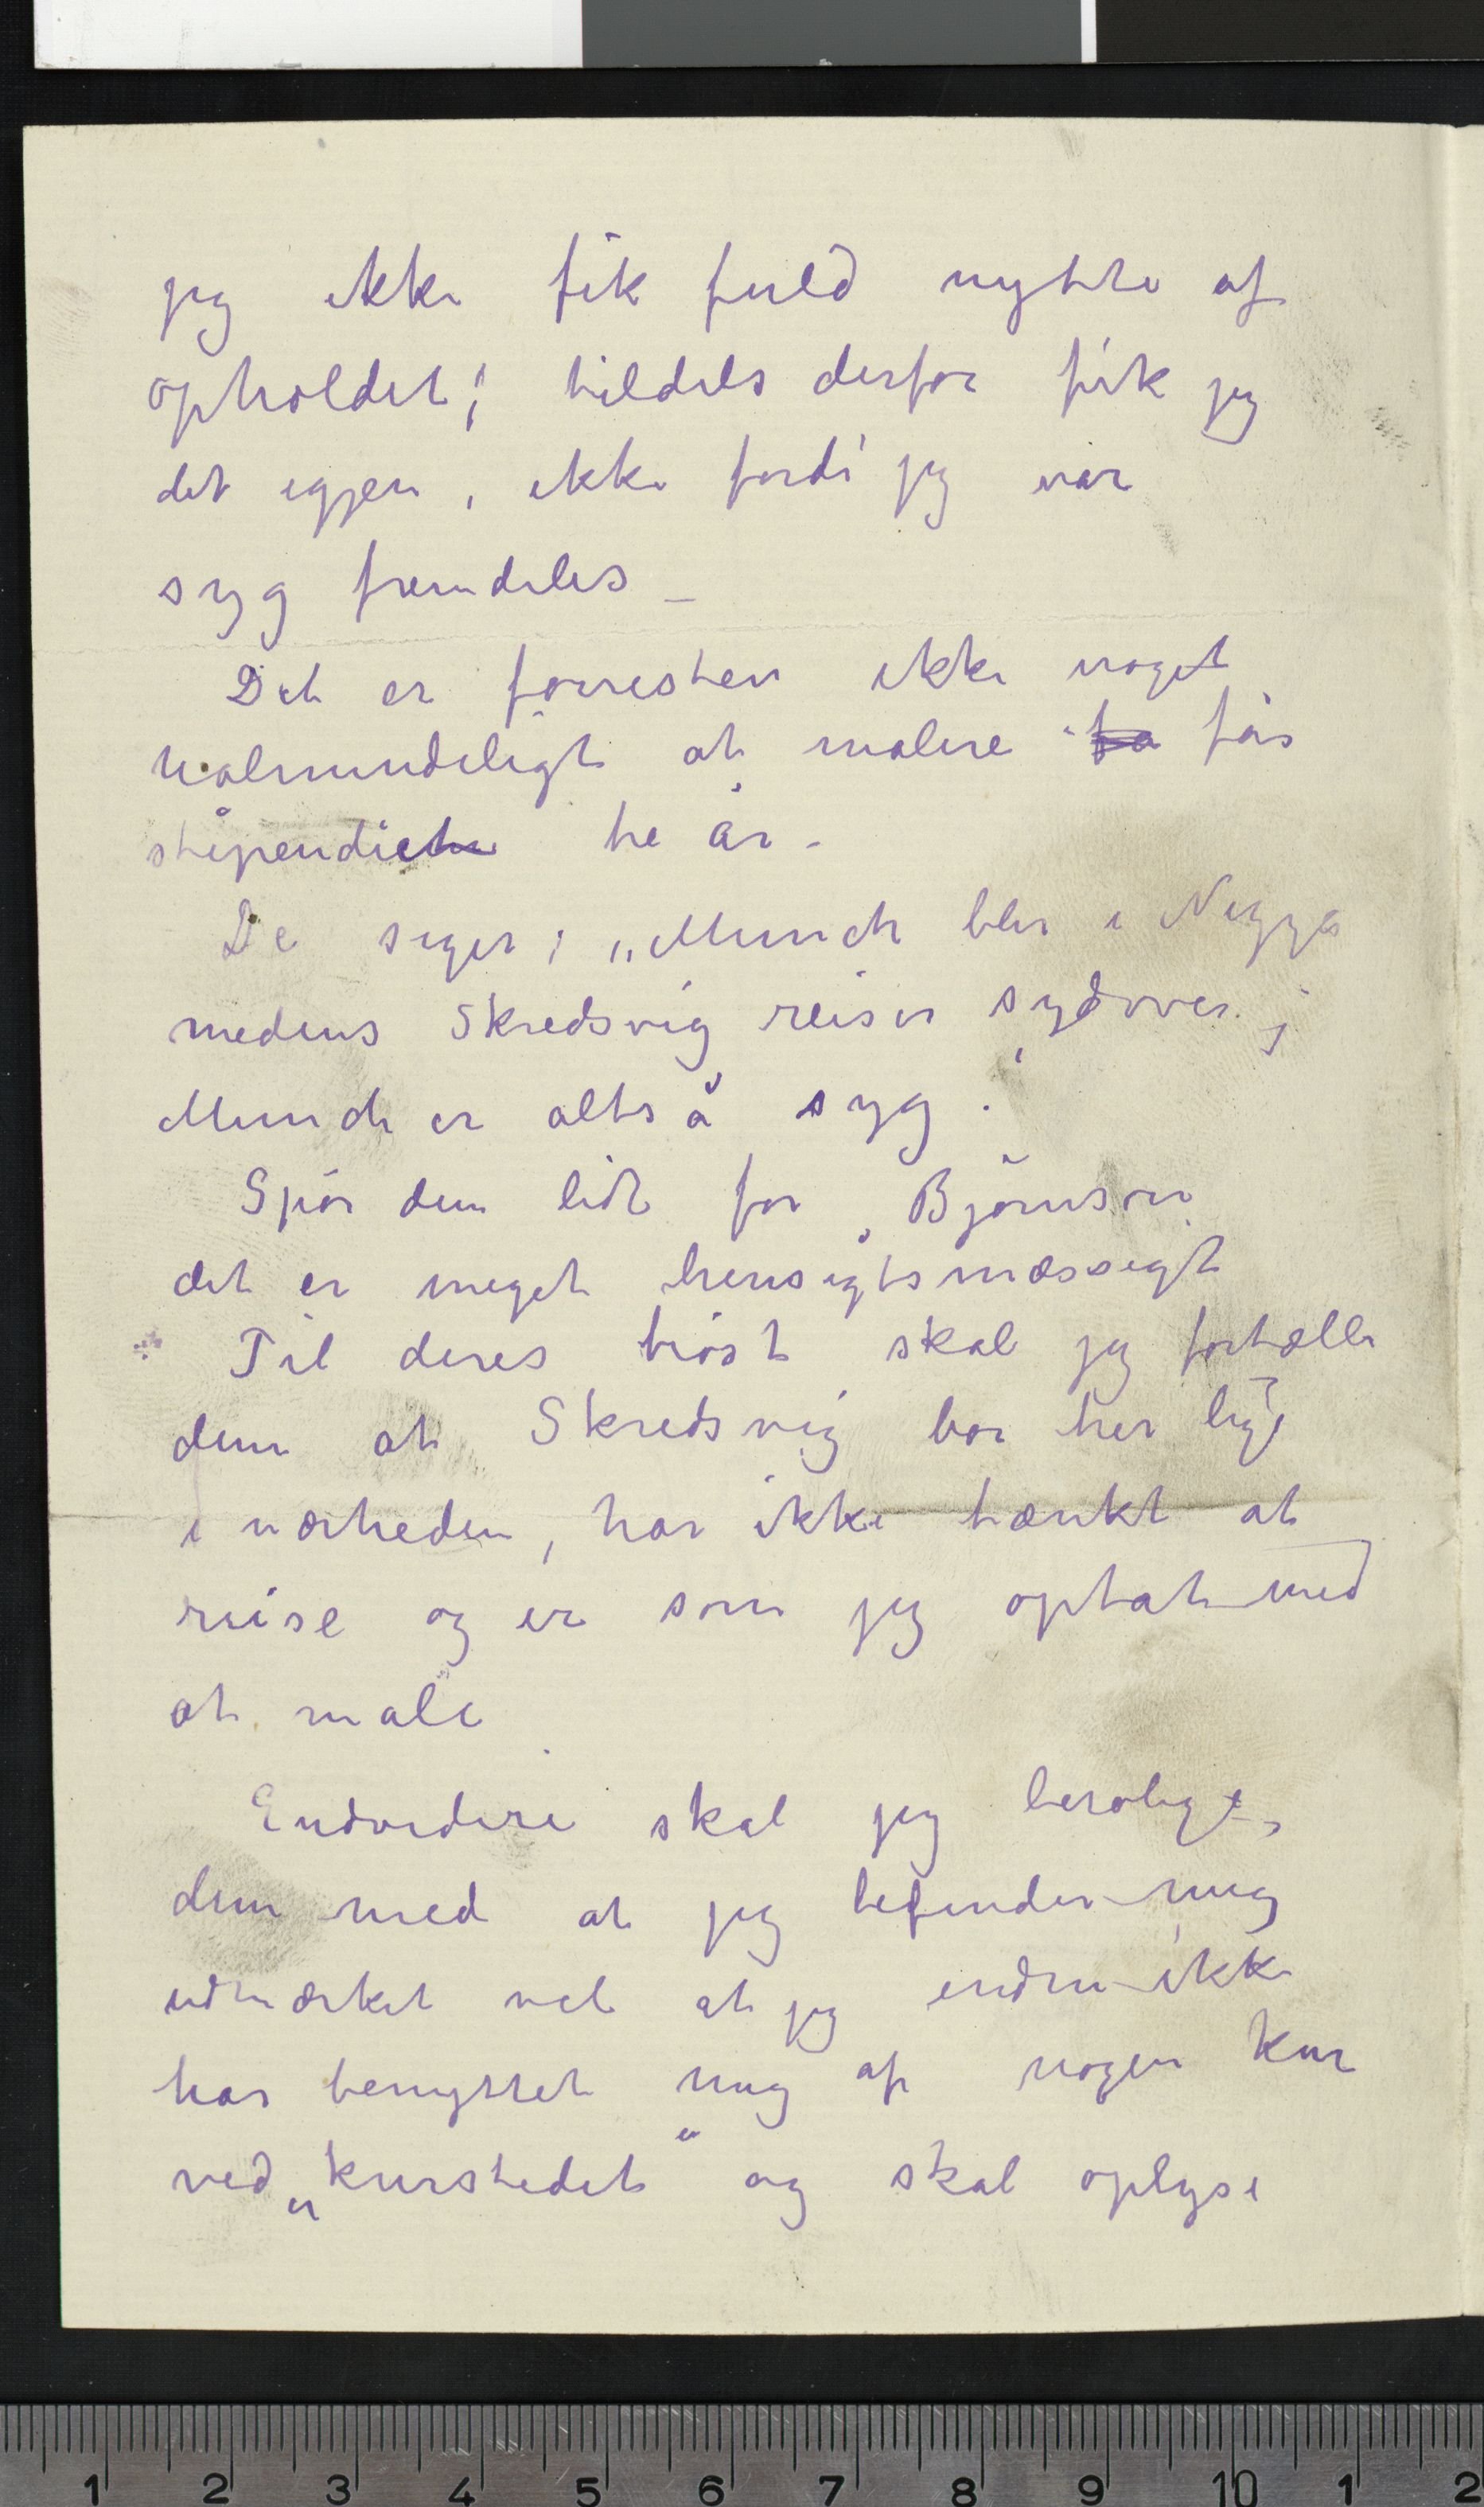 jeg ikke fik fuld nytte af
opholdet; tildels derfor fik jeg
det igjen, ikke fordi jeg var
syg fremdeles –
Det er forresten ikke noget
ualmindeligt at malere fa får
stipendiet tre år –
De siger; „Munch blir i Nizza
medens Skredsvig reiser sydover;
Munch er altså syg.
Spør dem lidt for, Bjørnson
det er meget hensigtsmæssigt
Til deres trøst skal jeg fortælle
dem at Skredsvig bor her lige
i nærheden, har ikke tænkt at
reise og er som jeg optat med
at male
Endvidere skal jeg berolige,
dem med at jeg befinder mig
udmærket vel at jeg endnu ikke
har benyttet mig af nogen kur
ved „kurstedet“ og skal oplyse
1 2 3 4 5 6 7 8 9 10 1 2